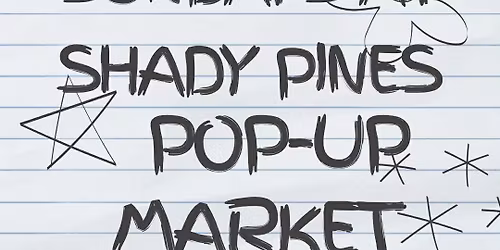 SHADY PINES
POP-UP
MARKET